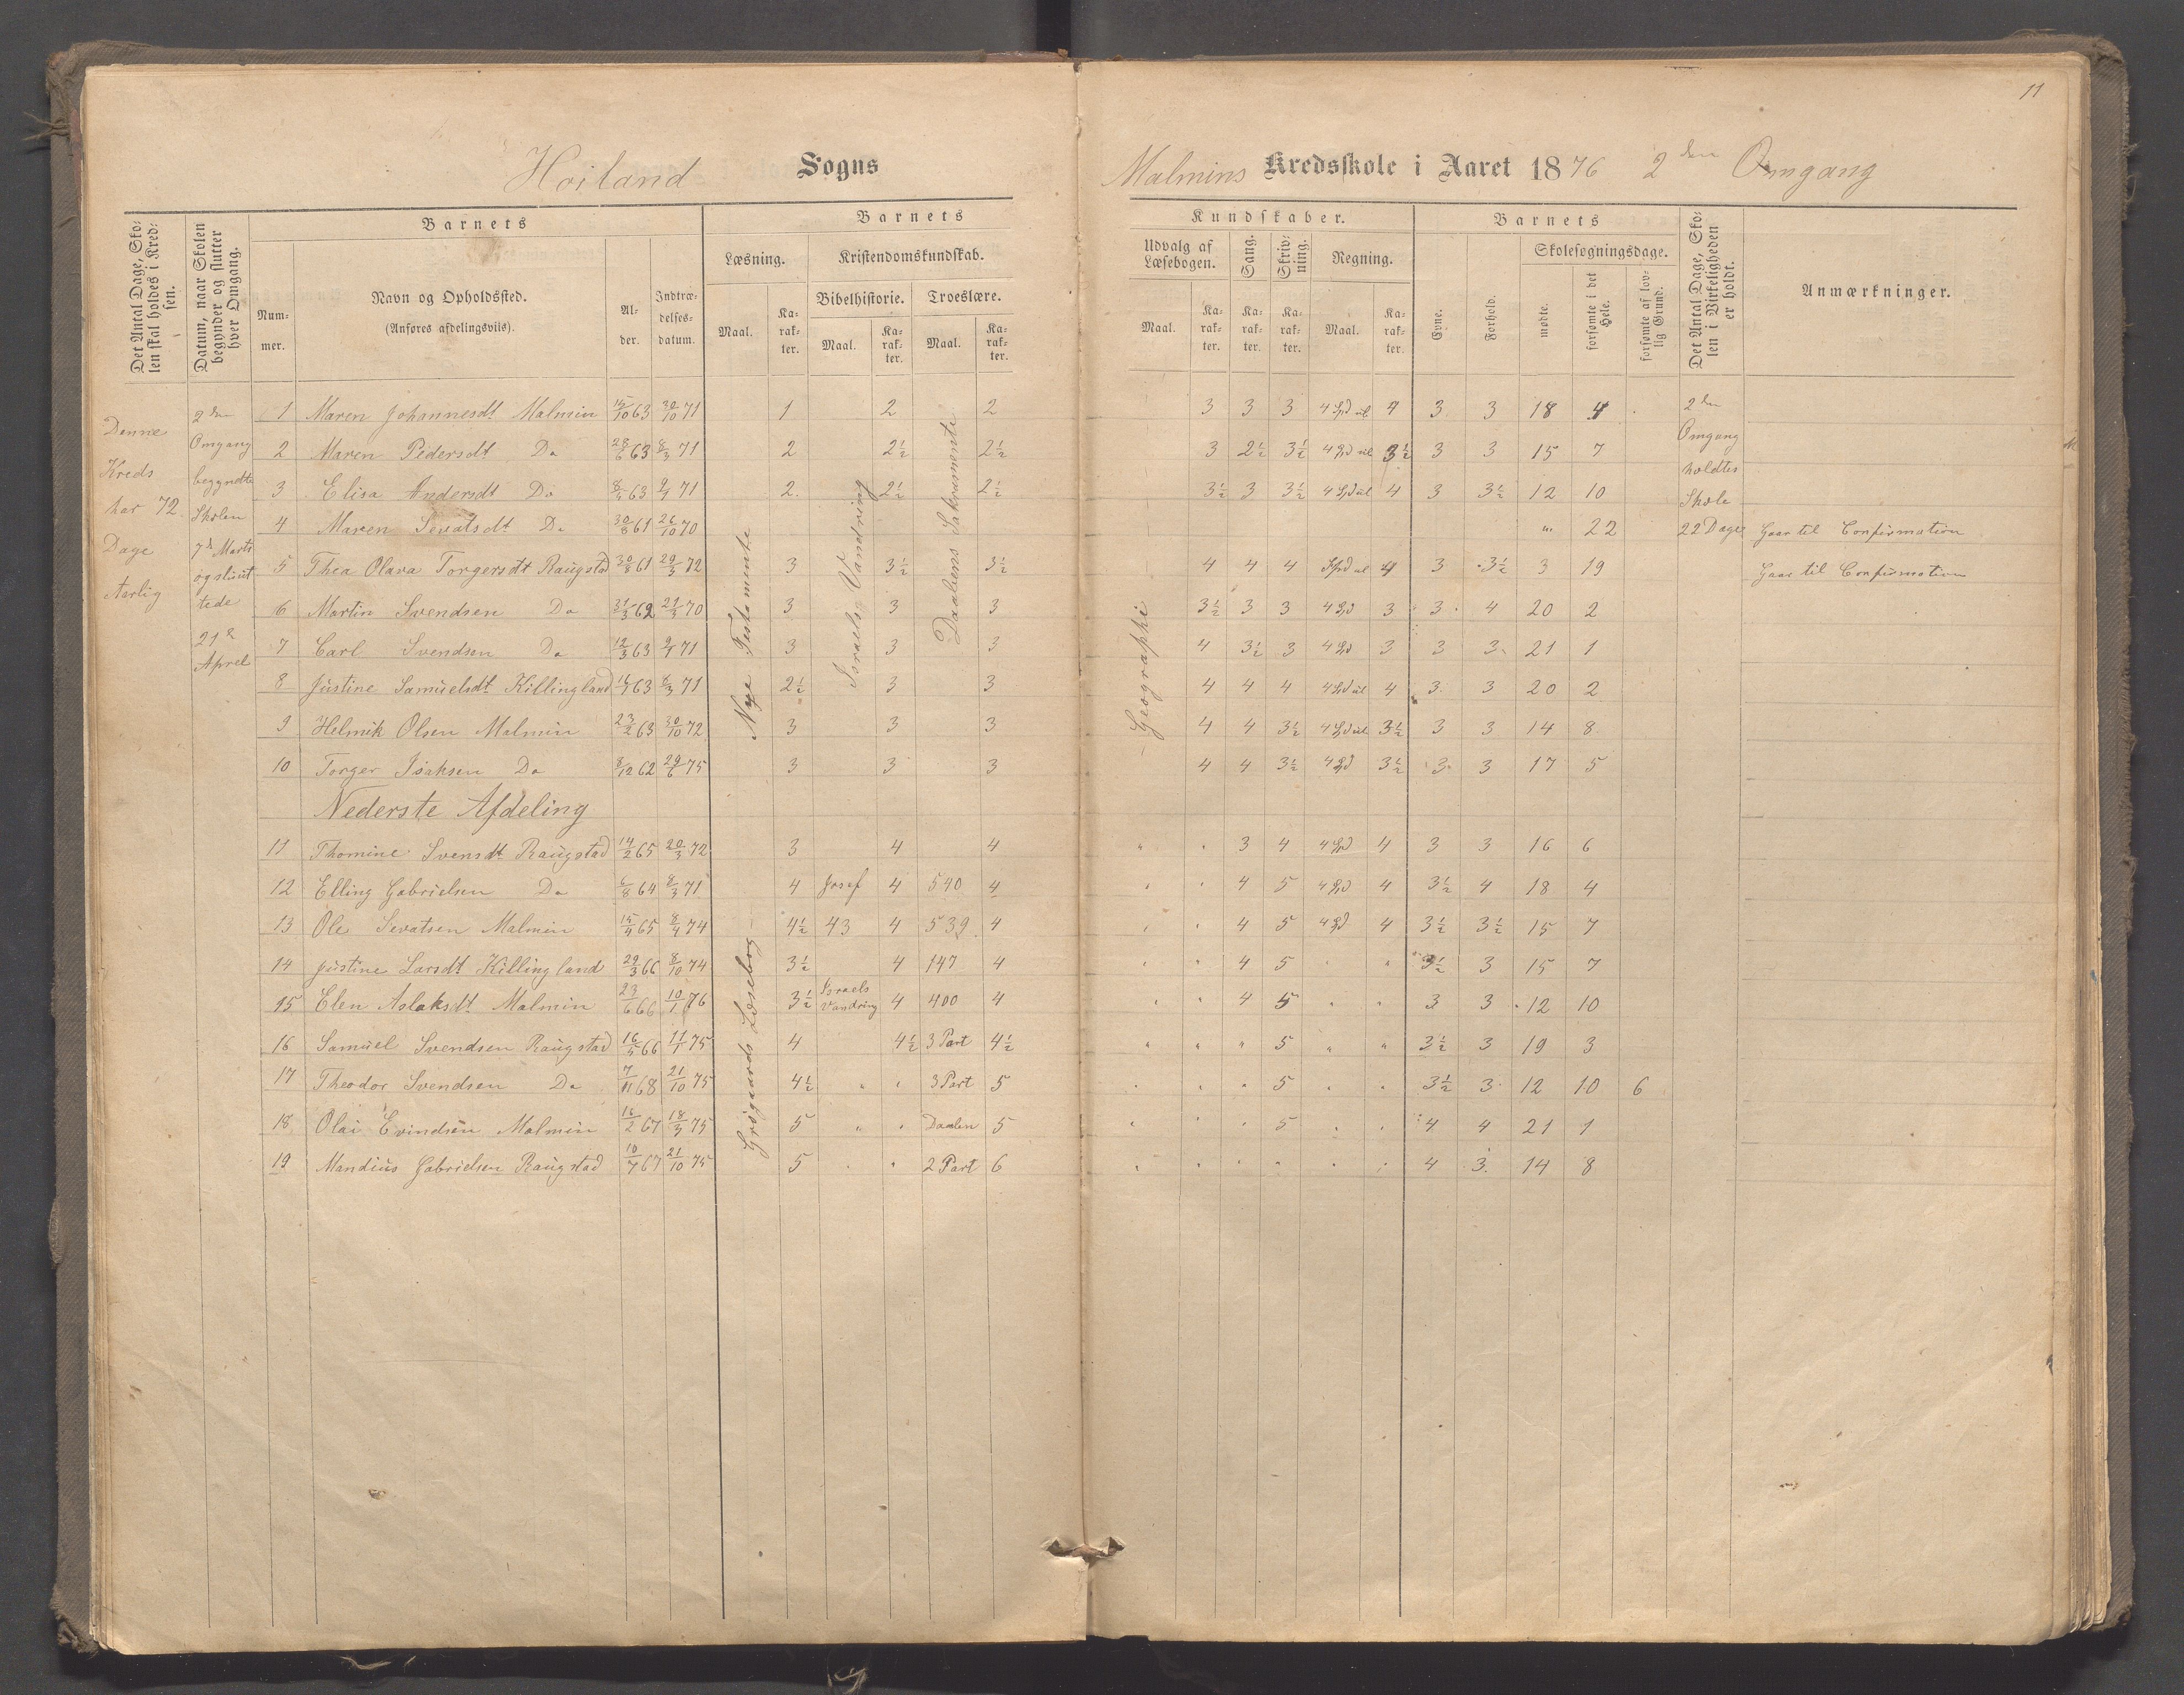 11
Hoiland Sogns
Malmins Kredsskole i Aaret 1876 2den Omgang
Det Antal Dage, Skolen skal holdes i Kredsen.
Datum, naar Skolen begynder og slutter hver Omgang.
Barnets
Nummer.
Navn og Opholdssted.
(Anføres afdelingsviis).
Alder.
Indtrædelsesdatum.
Barnets
Læsning.
Maal.
Karakter.
Kristendomskundskab.
Bibelhistorie.
Maal.
Karakter.
Troeslære.
Maal.
Karakter.
Kundskaber.
Udvalg af Læsebogen.
Maal.
Karakter.
Sang.
Karakter.
Skrivning.
Karakter.
Regning.
Maal.
Karakter.
Barnets
Evne.
Forhold.
Skolesøgningsdage.
mødte.
forsømte i det Hele.
forsømte af lovlig Grund.
Det Antal Dage, Skolen i Virkeligheden er holdt.
Anmærkninger.
Denne
Kreds
har 72
Dage
Aarlig
2den
Omgang
begyndte
Skolen
7de Marts
og sluut
tede
21de
Aprel
Nye Testamente
Israels Vandring
Daabens Sakramente
Geographi
Grøgaards Læsebog
2den
Omgang
holdtes
Skole
22 Dage
1 Maren Johannesdt Malmin 15/10 63 30/10 71 1 2 2 3 3 3 4 Spd ul 4 3 3 18 4
2 Maren Pedersdt Do 28/6 63 8/3 71 2 2½ 2½ 3 2½ 3½ 4 Spd ul 3½ 3 3 15 7
3 Elisa Andersdt Do 8/4 63 9/1 71 2 2½ 2½ 3½ 3 3½ 4 Spd ul 4 3 3½ 12 10
4 Maren Sevatsdt Do 30/8 61 26/10 70 " 22 Gaar til Confirmation
5 Thea Olava Torgersdt Raugstad 30/8 61 29/3 72 3 3½ 3½ 4 4 4 Spd ul 4 3 3½ 3 19 Gaar til Confirmation
6 Martin Svendsen Do 31/3 62 21/3 70 3 3 3 3½ 3 3 4 Spd 3 3 4 20 2
7 Carl Svendsen Do 12/3 63 9/1 71 3 3 3 4 3½ 3 4 Spd 3 3 3 21 1
8 Justine Samuelsdt Killingland 16/7 63 8/3 71 2½ 3 3 4 4 4 4 Spd ul 4 3 3 20 2
9 Helmik Olsen Malmin 23/2 63 30/10 72 3 3 3 4 4 3½ 4 Spd ul 3½ 3 3 14 8
10 Torger Isaksen Do 8/12 62 29/6 75 3 3 3 4 4 3½ 4 Spd 3½ 3 3 17 5
Nederste Afdeling
11 Thomine Svensdt Raugstad 14/2 65 20/3 72 3 4 4 " " 3 4 4 Spd 4 3 3 16 6
12 Elling Gabrielsen Do 6/8 64 8/3 71 4 Josef 4 540 4 " " 4 5 4 Spd 4 3½ 4 18 4
13 Ole Sevatsen Malmin 15/4 65 8/4 74 4½ 43 4 539 4 " " 4 5 4 Spd 4 3½ 3½ 15 7
14 Justine Larsdt Killingland 29/3 66 8/10 74 3½ 4 147 4 " " 4 5 " " 3½ 3 15 7
15 Elen Aslaksdt Malmin 23/6 66 10/1 76 3½ Israels Vandring 4 400 4 " " 4 5 " " 3 3 12 10
16 Samuel Svendsen Raugstad 16/5 66 11/1 75 4 4½ 3 Part 4½ " " " 5 " " 3½ 3 19 3
17 Theodor Svendsen Do 7/11 68 21/10 75 4½ " " 3 Part 5 " " " 5 " " 3½ 3 12 10 6
18 Olai Evindsen Malmin 16/2 67 18/3 75 5 " " Daaben 5 " " " 5 " " 4 4 21 1
19 Mandius Gabrielsen Raugstad 10/7 67 21/10 75 5 " " 2 Part 6 " " " " " " 4 3 14 8